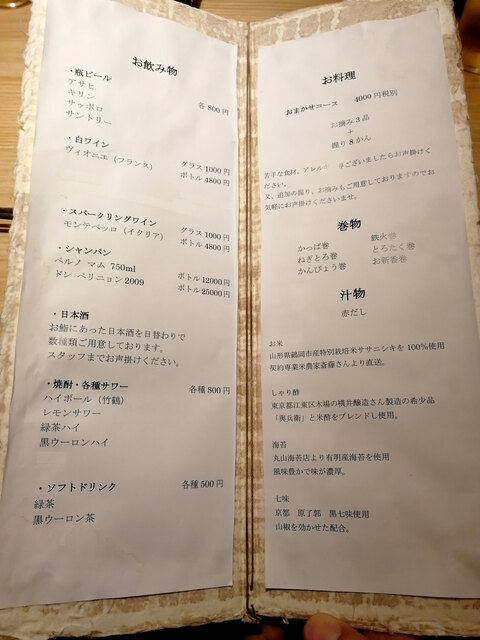 お飲み物
・瓶ビール
アサヒ
キリン
サッポロ
サントリー
各 800 円
・白ワイン
ヴィオニエ（フランス）
グラス 1000 円
ボトル 4800 円
・スパークリングワイン
モンテベッロ（イタリア）
グラス 1000 円
ボトル 4800 円
・シャンパン
ペルノ マム 750ml ボトル 12000 円
ドン ペリニョン 2009 ボトル 25000 円
・日本酒
お鮨にあった日本酒を日替わりで
数種類ご用意しております。
スタッフまでお声掛けください。
・焼酎・各種サワー 各種 800 円
ハイボール（竹鶴）
レモンサワー
緑茶ハイ
黒ウーロンハイ
・ソフトドリンク 各種 500 円
緑茶
黒ウーロン茶
お料理
おまかせコース 4000 円税別
お摘み 3 品
+
握り 8 かん
苦手な食材、アレルギー等ございましたらお声掛けく
ださい。
又、追加の握り、お摘みもご用意しておりますのでお
気軽にお声掛けくださいませ。
巻物
かっぱ巻 鉄火巻
ねぎとろ巻 とろたく巻
かんぴょう巻 お新香巻
汁物
赤だし
お米
山形県鶴岡市産特別栽培米ササニシキを 100％使用
契約専業米農家斎藤さんより直送。
しゃり酢
東京都江東区木場の横井醸造さん製造の希少品
「與兵衛」と米酢をブレンドし使用。
海苔
丸山海苔店より有明産海苔を使用
風味豊かで味が濃厚。
七味
京都 原了郭 黒七味使用
山椒を効かせた配合。